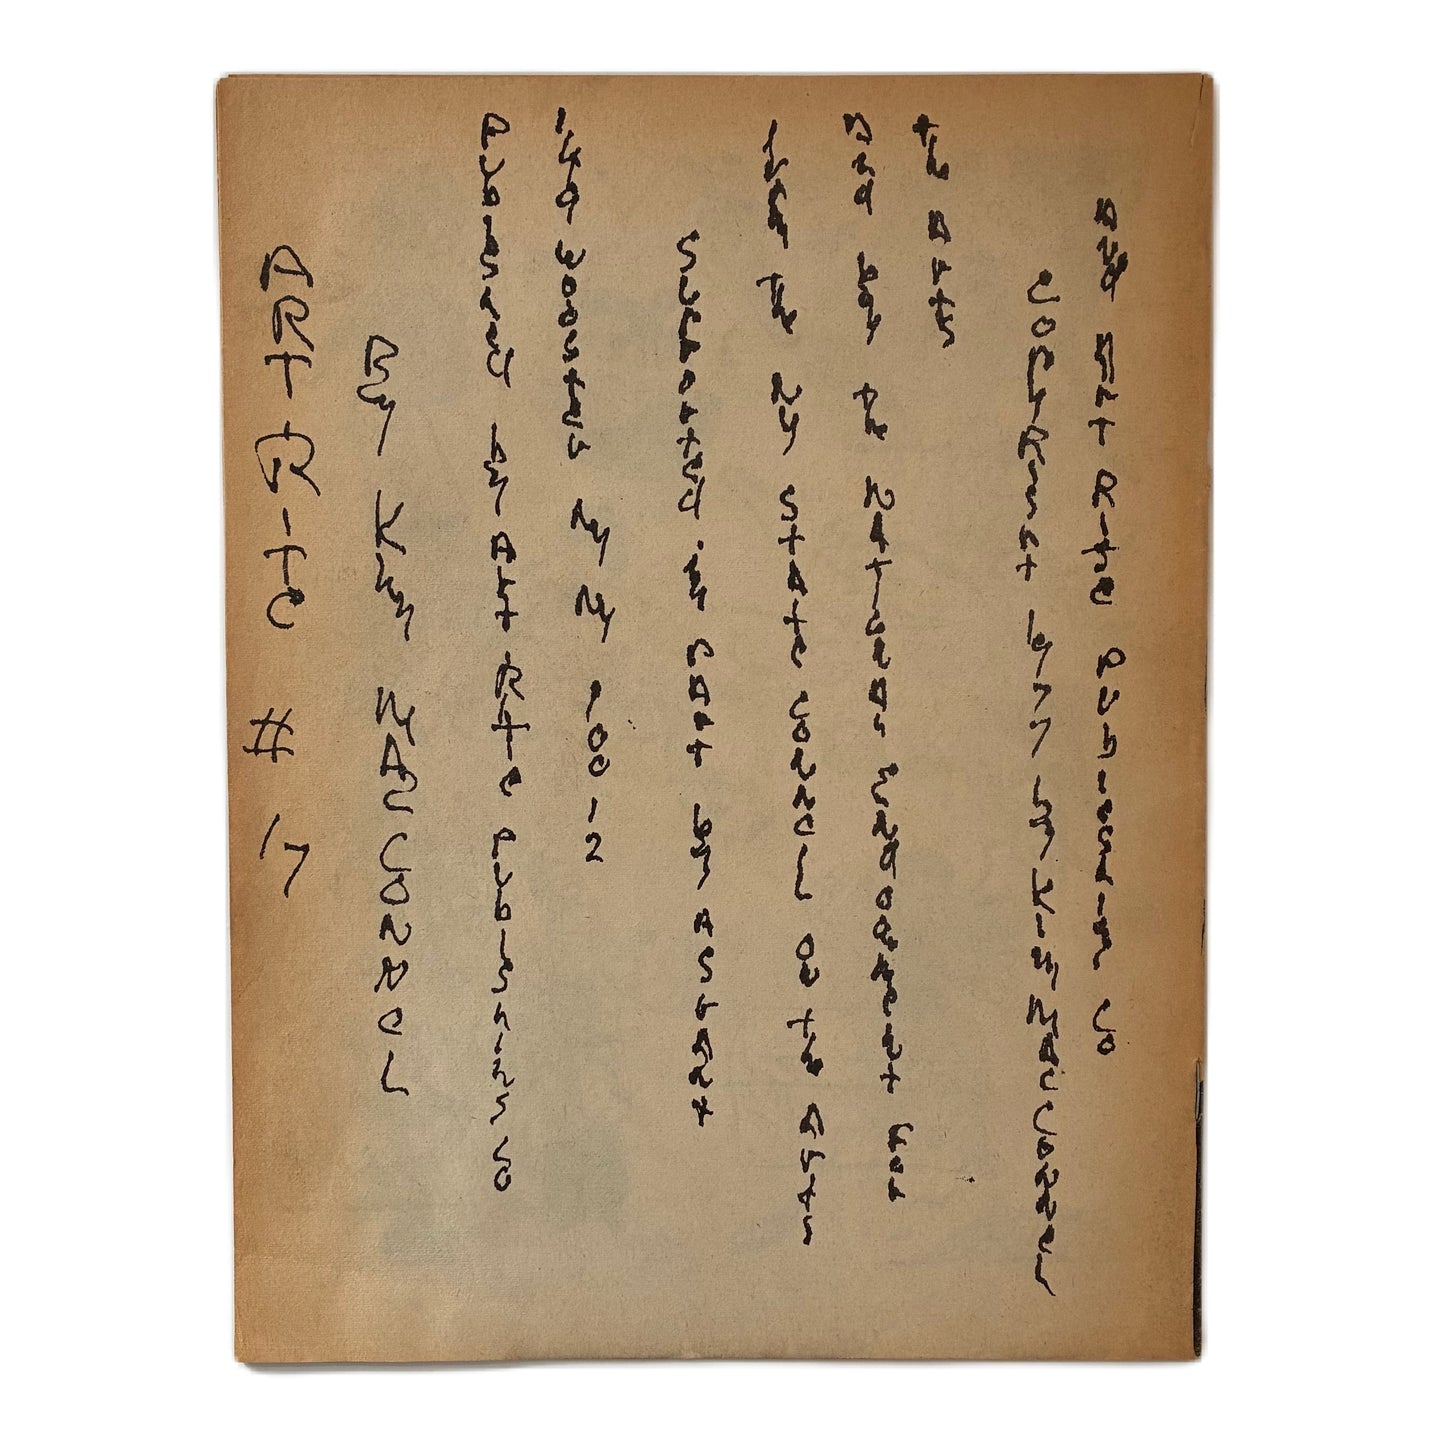 ART-RITE # 17
By KIM MACCONNEL
PUBLISHED BY ART RITE PUBLISHING CO
149 WOOSTER NY NY 10012
SUPPORTED in PART BY A GRANT
the NY STATE COUNCIL ON the ARTS
AND BY the NATIONAL ENDOWMENT FOR
the ARTS
COPYRIGHT 1977 by KIM MACCONNEL
AND ART RITE PUBLISHING CO